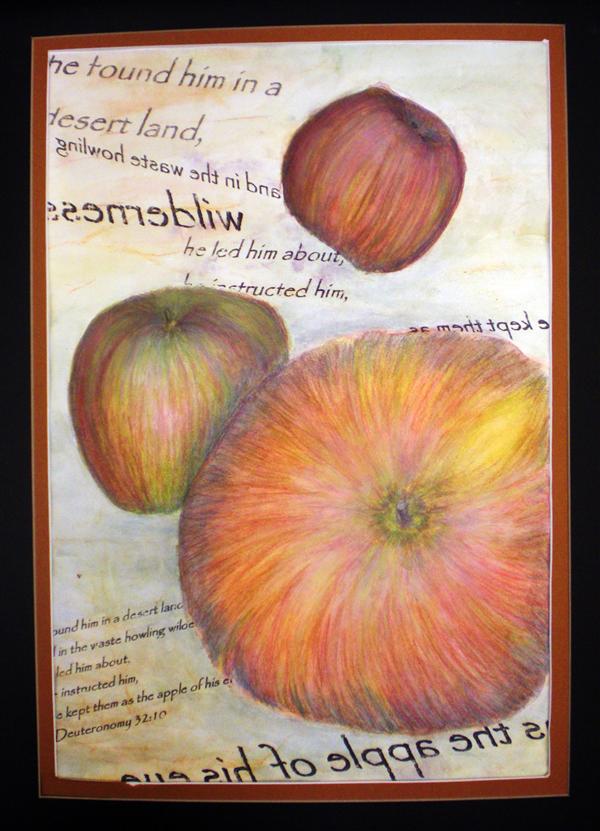 he found him in a
desert land,
and in the waste howling
wilderness
he led him about,
he instructed him,
e kept them as
ound him in a desert land
in the waste howling wilde
led him about,
instructed him,
e kept them as the apple of his e
Deuteronomy 32:10
as the apple of his eye